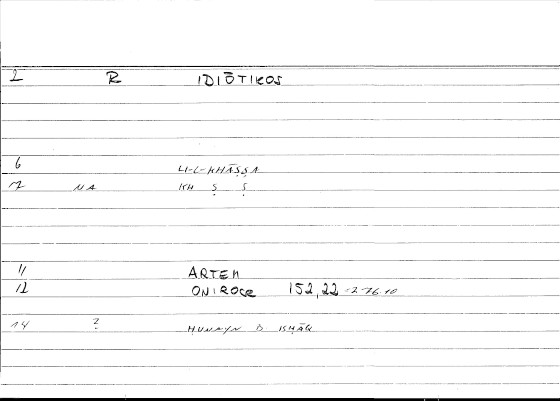 2 R IDIŌTIKOS
6 LI-L-KHĀṢṢA
7 NA KH Ṣ Ṣ
11 ARTEM
12 ONIROCR 152,22 = 276.10
14 ? ḤUNAYN B ISḤĀQ